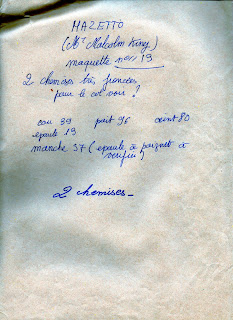 MAZETTO
(Mr Malcolm King)
maquette nos 13
2 chemises très froncées
pour le col voir ?
cou 39 poit 96 ceint 80
epaule 13
manche 57 (epaule à poignet à
verifier)
2 chemises_